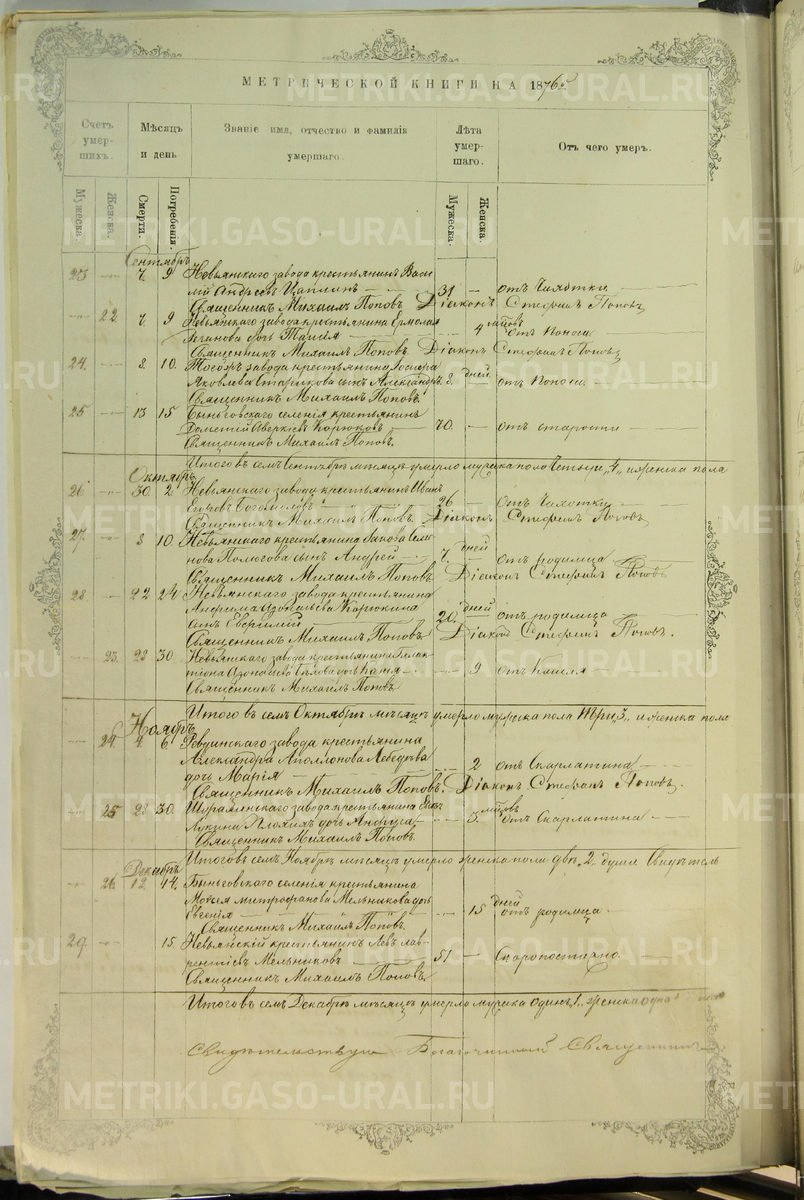 МЕТРИЧЕСКОЙ КНИГИ НА 1876
Счет умерших.
Мѣсяцъ и день
Званіе имя, отчество и фамилія умершаго.
Лѣта умершаго.
Отъ чего умеръ.
Мужеска.
Женска.
Смерти.
Погребенія.
Мужеска.
Женска.
Сентябрь
23 7. 9 Невьянскаго завода крестьянинъ Васи-
лій Андреевъ 31 — отъ Чахотки
Священникъ Михаилъ Поповъ Діаконъ Стефанъ Поповъ
22 7. 9 Невьянскаго завода крестьянина Ермолая
дочь Таисія 4 отъ Поноса
Священникъ Михаилъ Поповъ. Діаконъ Стефанъ Поповъ
24. 8. 10. завода крестьянина
Яковлева сынъ Александръ 8. дней отъ Поноса
Священникъ Михаилъ Поповъ.
25 13 15 Быньговскаго селенія крестьянинъ
Дометій Аверкіевъ Корюковъ 70. — отъ старости
Священникъ Михаилъ Поповъ.
Итого въ семъ Сентябрѣ мѣсяцѣ умерло мужеска пола четыре „4„ и женска пола
Октябрь
26 30. 2 Невьянскаго завода крестьянинъ Иванъ
Богомоловъ 26 — отъ Чахотки
Священникъ Михаилъ Поповъ. Діаконъ Стефанъ Поповъ
27. 8 10 Невьянскаго крестьянина Якова Семе-
нова сынъ Андрей 7. дней отъ родимца
Священникъ Михаилъ Поповъ Діаконъ Стефанъ Поповъ
28 22 24 Невьянскаго завода крестьянина
Корюкина
сынъ Евгеній 20. дней отъ родимца
Священникъ Михаилъ Поповъ Діаконъ Стефанъ Поповъ.
23. 28 30 Невьянскаго завода крестьянина Галак-
тіона 9 отъ Кашля
Священникъ Михаилъ Поповъ
Итого въ семъ Октябрѣ мѣсяцѣ умерло мужеска пола три „3„ и женска пола
Ноябрь
24 4 6 Ревдинскаго завода крестьянина
Александра Аполлонова Лебедева
дочь Марія 2 отъ Скарлатина
Священникъ Михаилъ Поповъ. Діаконъ Стефанъ Поповъ.
25 28 30. Шуралинскаго завода крестьянина
Лукина дочь Анфуса 5. отъ Скарлатина
Священникъ Михаилъ Поповъ.
Итого въ семъ Ноябрѣ мѣсяцѣ умерло женска пола двѣ „2„ души
Декабрь
26. 12. 14. Быньговскаго селенія крестьянина
Моисея Митрофанова Мельникова дочь
Евгенія 15 дней отъ родимца
Священникъ Михаилъ Поповъ.
29. 15. Невьянскій крестьянинъ Левъ Лав-
рентіевъ Мельниковъ 51 — Скоропостижно.
Священникъ Михаилъ Поповъ
Итого въ семъ Декабрѣ мѣсяцѣ умерло мужска одинъ 1. женска одна
Свидѣтельствую Благочинный Священникъ
METRIKI.GASO-URAL.RU